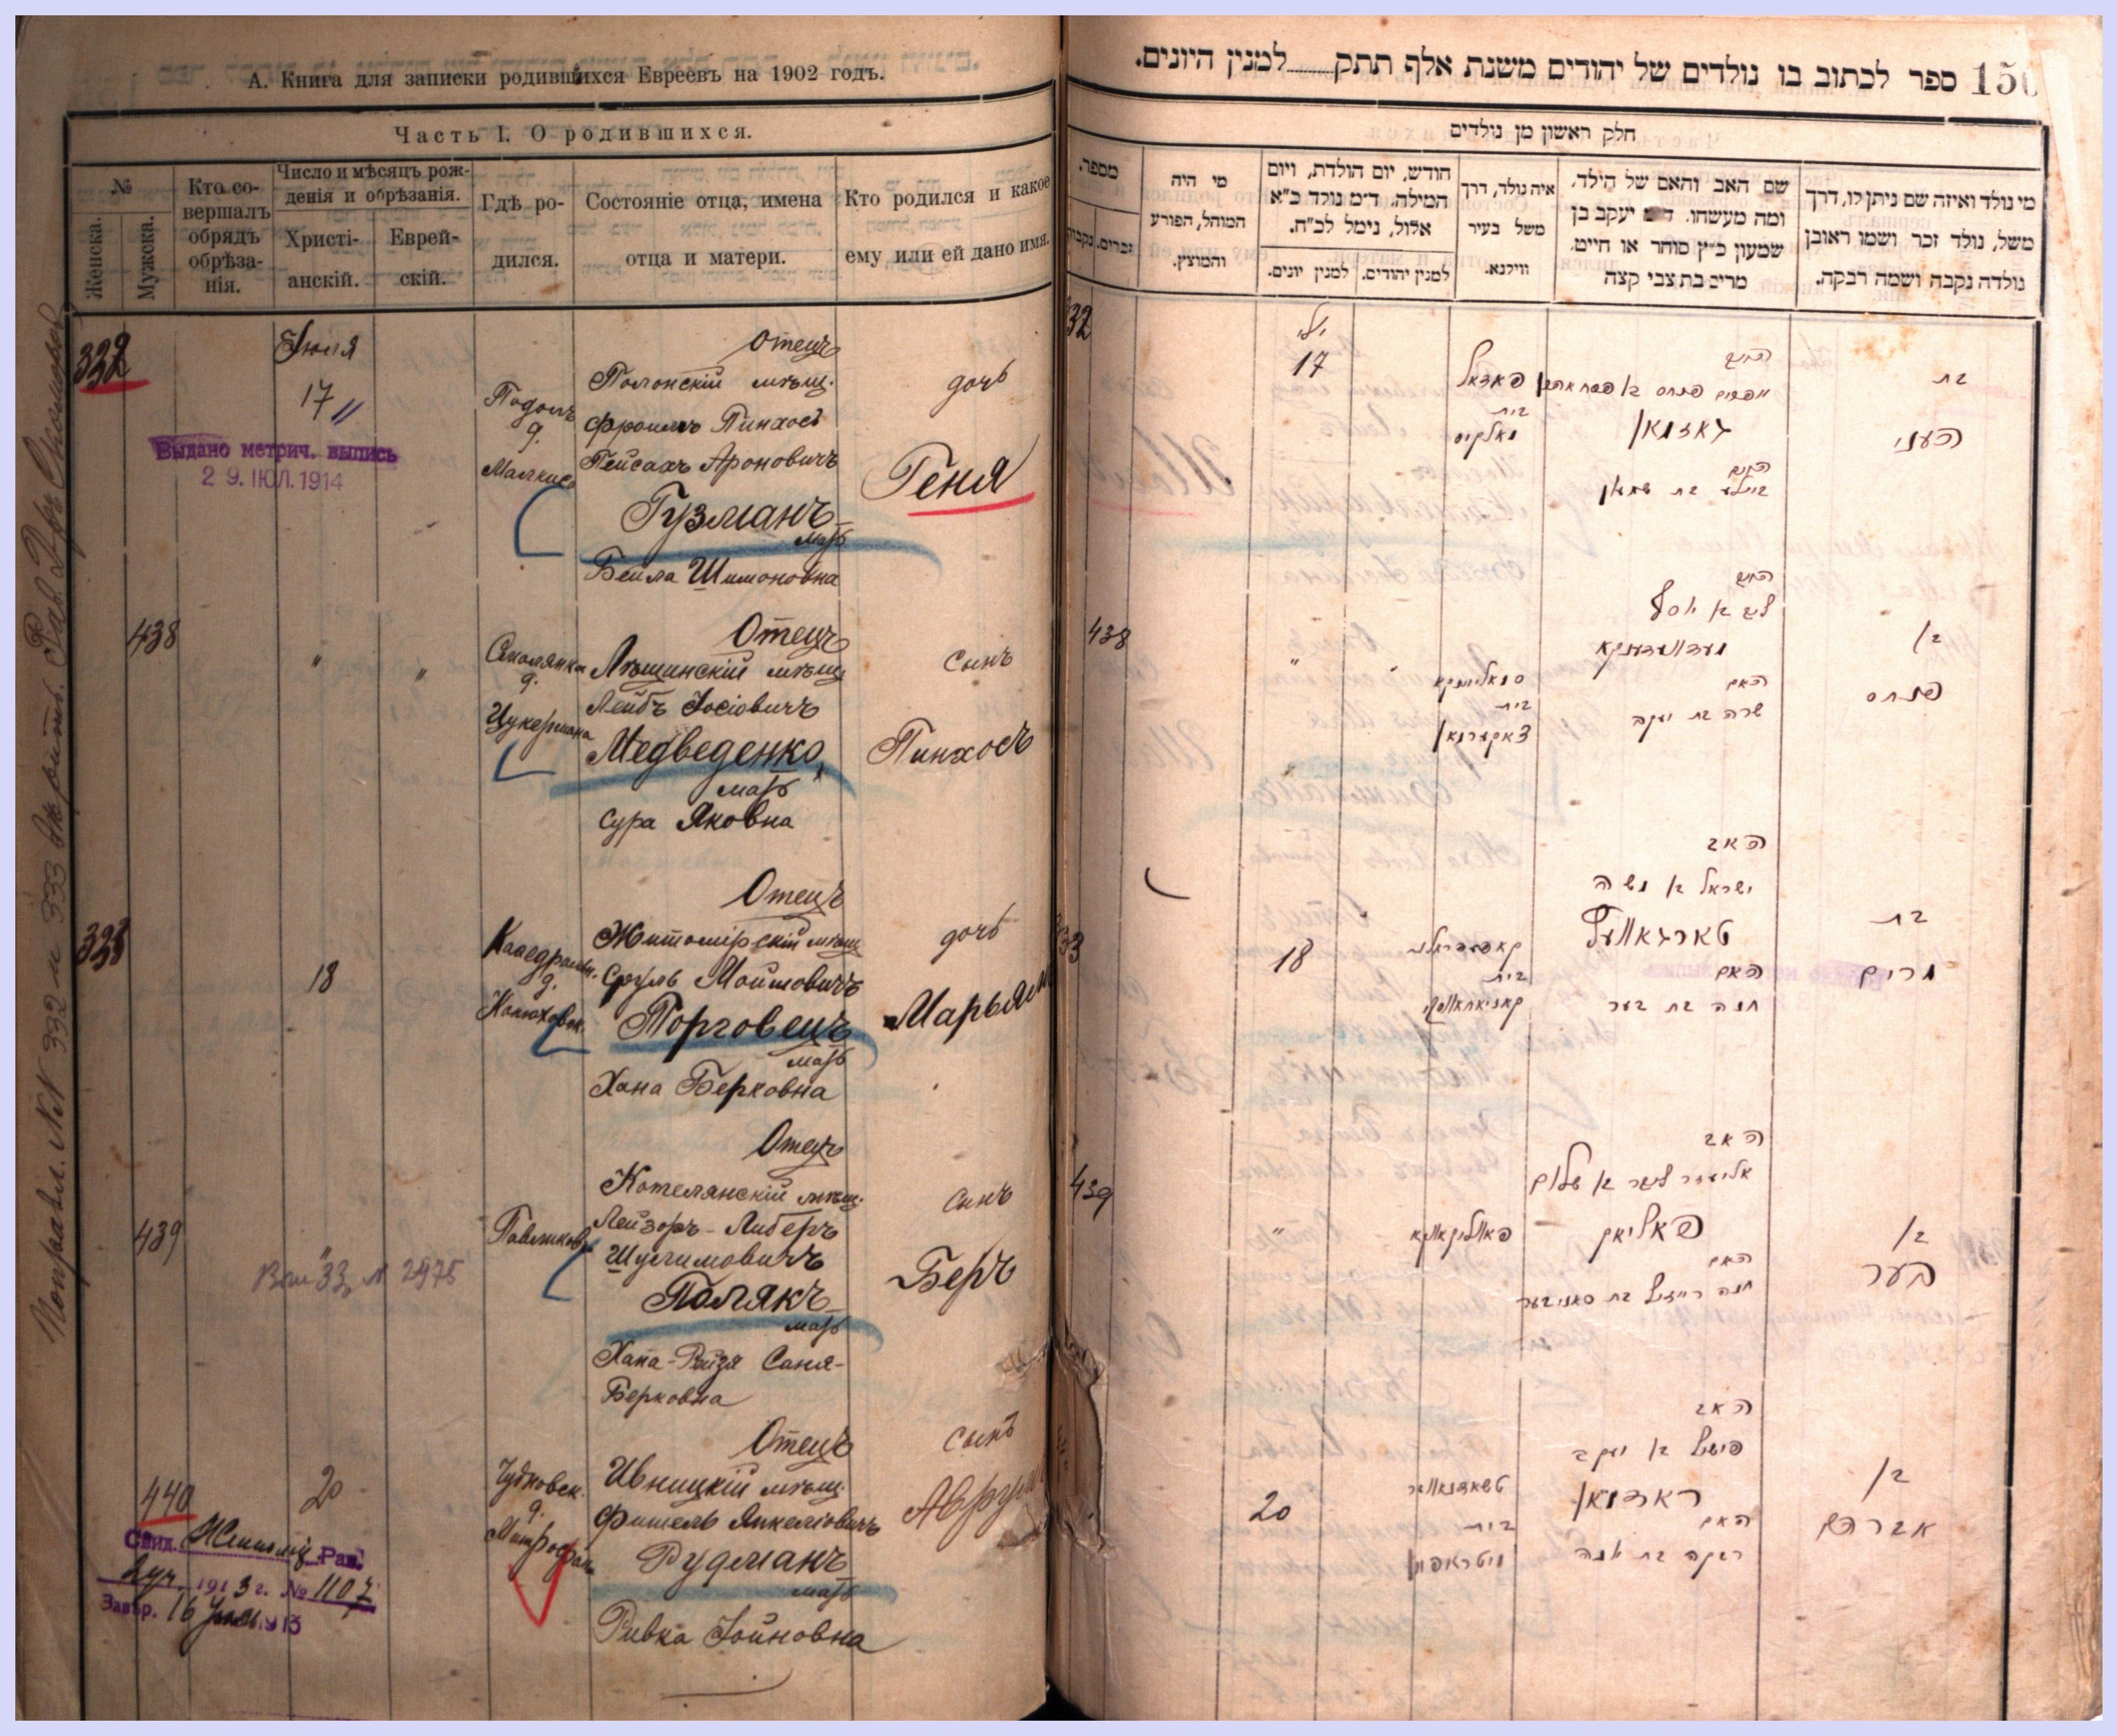 А. Книга для записки родившихся Евреевъ на 1902 годъ.
Часть I. О родившихся.
№
Женска.
Мужска.
Кто со-
вершалъ
обрядъ
обрѣза-
нія.
Число и мѣсяцъ рож-
денія и обрѣзанія.
Христі-
анскій.
Еврей-
скій.
Гдѣ ро-
дился.
Состояніе отца, имена
отца и матери.
Кто родился и какое
ему или ей дано имя.
332
Іюля
17 "
Выдано метрич. выпись
2 9. ІЮЛ. 1914
Подолъ
д.
Малкиса
Отецъ
Полонскій мѣщ.
Фроимъ Пинхосъ
Пейсахъ Ароновичъ
Гузманъ
мать
Бейла Шимоновна
дочь
Геня
438
" "
Смолянка
д.
Цукермана
Отецъ
Лѣщинскій мѣщ.
Лейбъ Іосіовичъ
Медведенко,
мать
Сура Яковна
сынъ
Пинхосъ
333
18
Кафедральн.
д.
Отецъ
Житомірскій мѣщ.
Сруль Мошковичъ
Торговецъ
мать
Хана Берковна
дочь
Марьям
439
"
№ 2975
Отецъ
Котелянскій мѣщ.
Лейзоръ-Либеръ
Шулимовичъ
Полякъ
мать
Хана-Рейзя Саня-
Берковна
сынъ
Беръ
440
20
Свид. Житомір. Рав.
2 уч. 1913 г. № 1107
Завѣр. 16 1913
Чудновск.
д.
Отецъ
Ивницкій мѣщ.
Фишель Янкеліовичъ
Рудманъ
мать
Ривка Іойновна
сынъ
Аврум
Поправл. №№ 332 и 333 вѣрить. Рав.
150 ספר לכתוב בו נולדים של יהודים משנת אלף תתק למנין היונים.
חלק ראשון מן נולדים
מספר.
זכרים. נקבות
מי היה
המוהל, הפורע
והמוצץ.
חודש, יום הולדת, ויום
המילה. ד״מ נולד כ״א
אלול, נימל לכ״ח.
למנין יהודים. למנין יונים.
איה נולד, דרך
משל בעיר
ווילנא.
שם האב והאם של הילד,
ומה מעשהו. ד״מ יעקב בן
שמעון כ״ץ סוחר או חייט.
מרים בת צבי קצה
מי נולד ואיזה שם ניתן לו, דרך
משל, נולד זכר ושמו ראובן
נולדה נקבה ושמה רבקה.
32
יולי
17
פאדאל
בית
מאלקיס
האב
גאזמאן
האם
ביילע בת שמעון
בת
העני
438
"
סמאליאנקא
בית
צוקערמאן
האב
ליב בן יוסף
מעדוועדענקא
האם
שרה בת יעקב
בן
פנחס
33
18
בית
האב
ישראל בן משה
טארגאוועץ
האם
חנה בת בער
בת
מרים
439
"
פאוולקאווקא
האב
אליעזר ליבער בן שלום
פאליאק
האם
חנה רייזיל בת סאניבער
בן
בער
20
בית
מיטראפאן
האב
פישל בן יעקב
רודמאן
האם
רבקה בת יונה
בן
אברהם